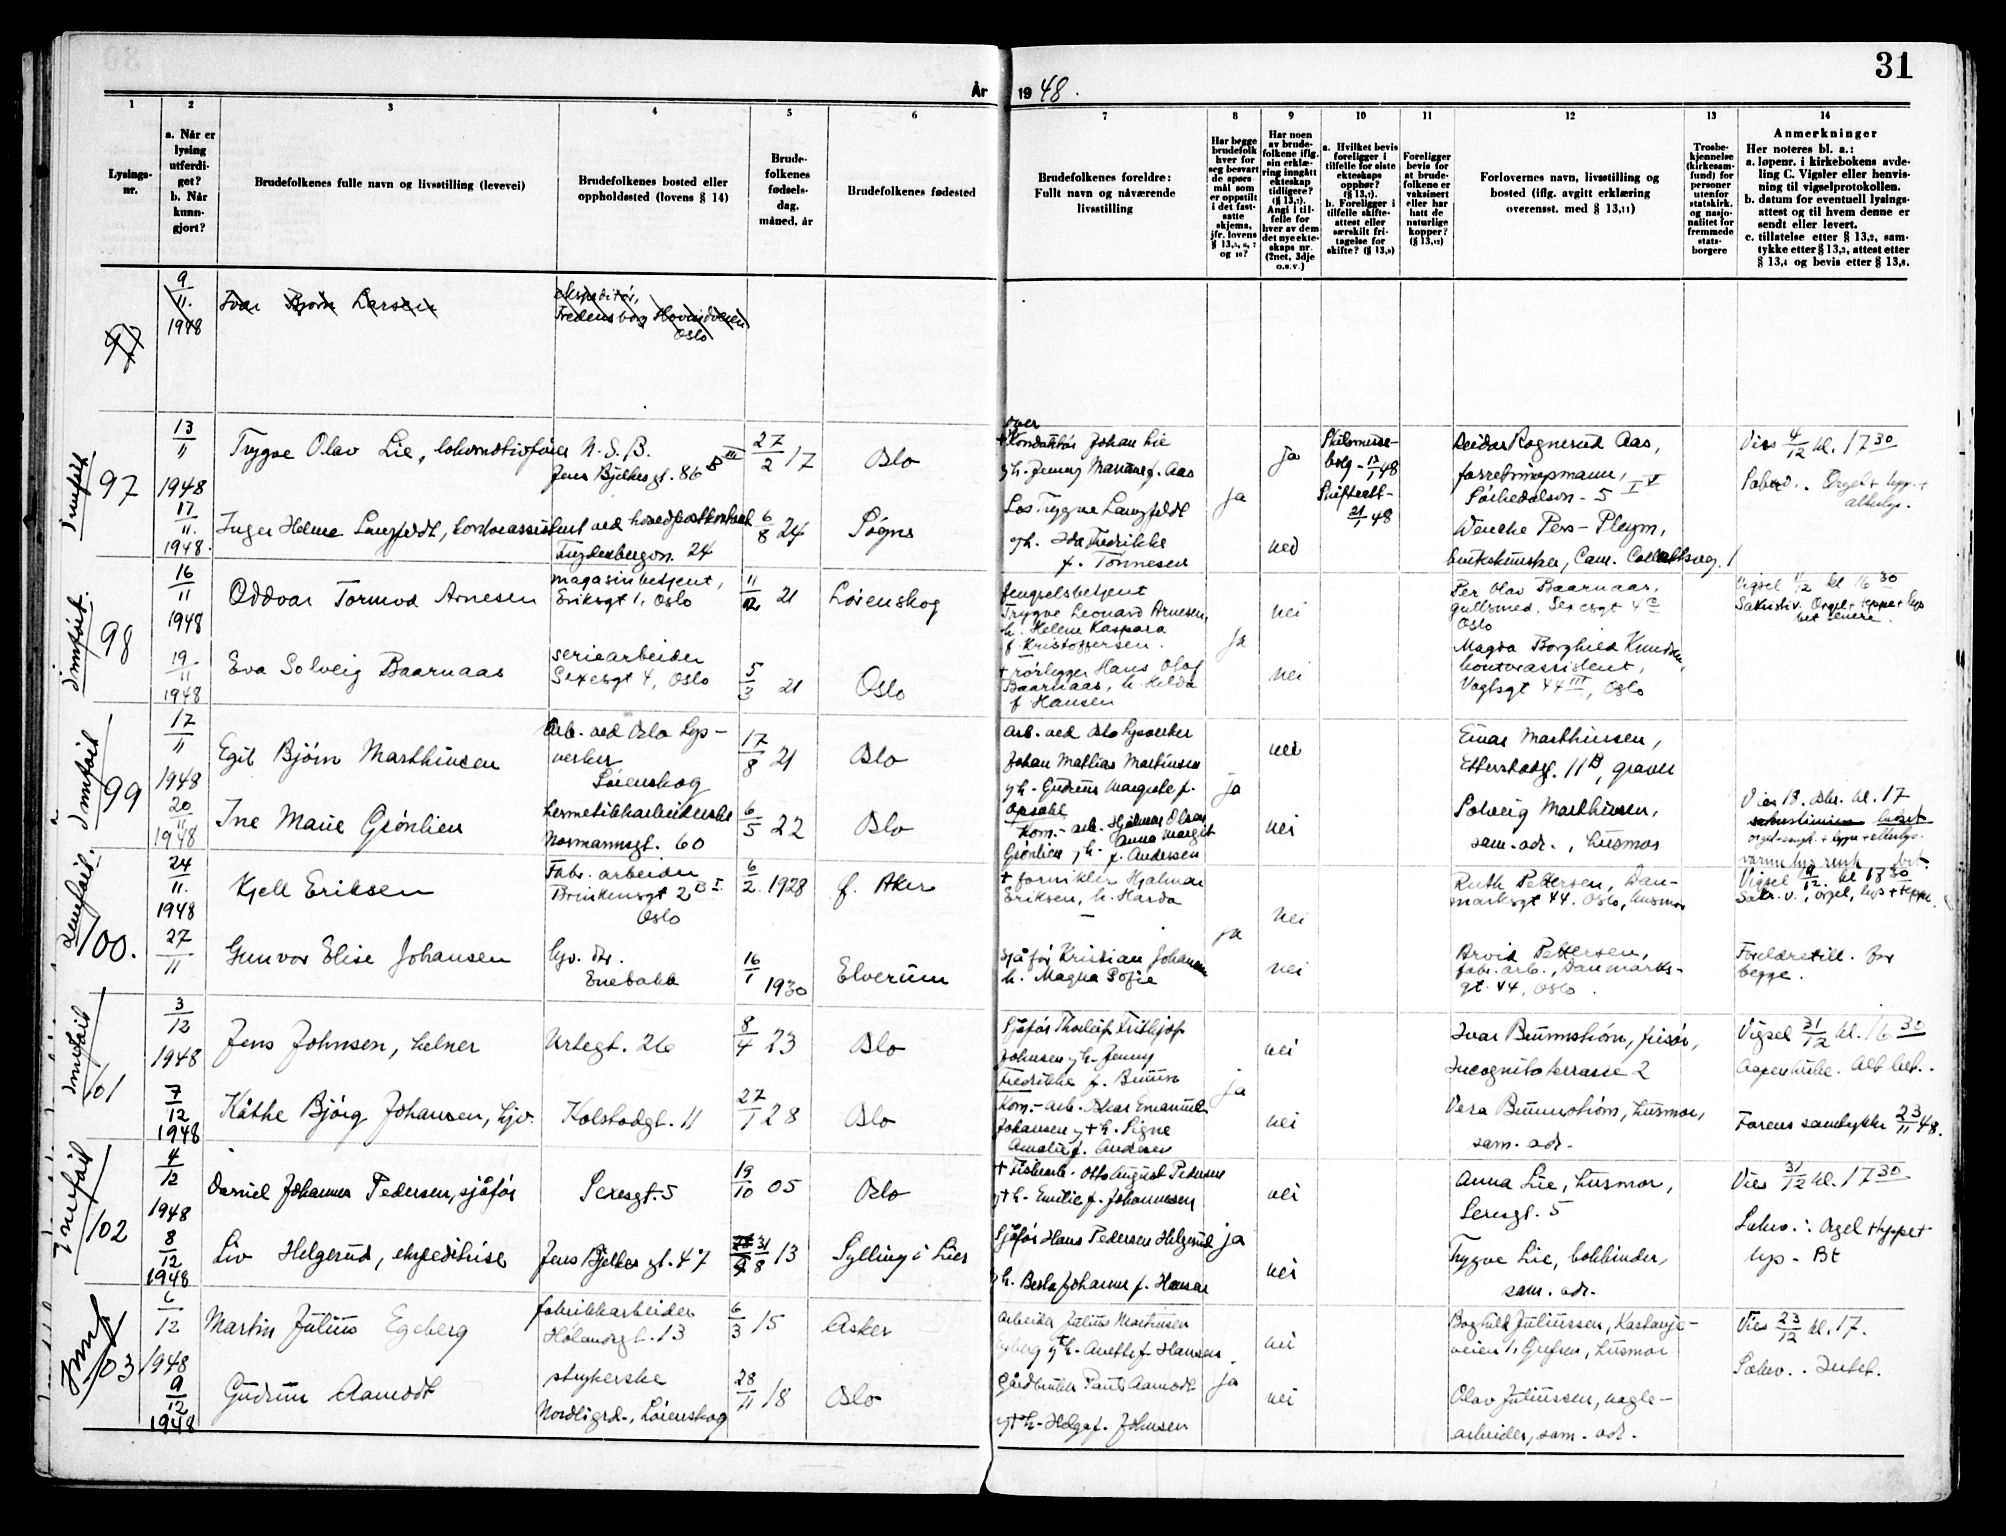 31
År 1948.
1
2
3
4
5
6
7
8
9
10
11
12
13
14
Lysings-
nr.
a. Når er
lysing
utferdi-
get?
b. Når
kunn-
gjort?
Brudefolkenes fulle navn og livsstilling (levevei)
Brudefolkenes bosted eller
oppholdssted (lovens § 14)
Brude-
folkenes
fødsels-
dag,
måned, år
Brudefolkenes fødested
Brudefolkenes foreldre:
Fullt navn og nåværende
livsstilling
Har begge
brudefolk
hver for
seg besvart
de spørs-
mål som
er oppstilt
i det fast-
satte
skjema,
jfr. lovens
§ 13,5, 6, 7
og 10?
Har noen
av brude-
folkene iflg.
sin erklæ-
ring inngått
ekteskap
tidligere?
(§ 13,7).
Angi i til-
felle for
hver av dem
det nye ekte-
skaps nr.
(2net, 3dje
o.s.v.)
a. Hvilket bevis
foreligger i
tilfelle for siste
ekteskaps
opphør?
(§ 13,7).
b. Foreligger i
tilfelle skifte-
attest eller
særskilt fri-
tagelse for
skifte? (§ 13,9)
Foreligger
bevis for
at brude-
folkene er
vaksinert
eller har
hatt de
naturlige
kopper?
(§ 13,12)
Forlovernes navn, livsstilling og
bosted (iflg. avgitt erklæring
overensst. med § 13,11)
Trosbe-
kjennelse
(kirkesam-
fund) for
personer
utenfor
statskirk.
og nasjo-
nalitet for
fremmede
stats-
borgere
Anmerkninger
Her noteres bl. a.:
a. løpenr. i kirkebokens avde-
ling C. Vigsler eller henvis-
ning til vigselprotokollen.
b. datum for eventuell lysings-
attest og til hvem denne er
sendt eller levert.
c. tillatelse etter § 13,2, sam-
tykke etter § 13,3, attest etter
§ 13,4 og bevis etter § 13,8.
9/11. 1948
Ivar Bjørn Larsen
ekspeditør,
Fredensborg Hovindveien
Oslo
97
13/11 1948
Trygve Olav Lie, lokomotivfører N.S.B.
Jens Bjelkesgt. 86 B III
27/2 17
Oslo
Konduktør Johan Lie
g h. Jenny Marie f. Aas
ja
Skilsmisse-
Reidar Rognerud Aas,
forretningsmann,
Sørkedalsvn - 5
Vies 4/12 kl. 17 30
17/11. 1948.
Inger Helene Langfeldt, kontorassistent ved hovedpostkontoret
24
6/8 24
Søgne
Los Trygve Langfeldt
g h. Ida Fredrikke
f. Tønnesen
ja
Skifteatt-
21/1 48
Wenche Pers-Pleym,
98
16/11 1948
Oddvar Tormod Arnesen
magasinbetjent,
Eriksgt 1, Oslo
11/12 21
Lørenskog
fengselsbetjent
Trygve Leonard Arnesen,
h. Helene Kaspara
f Kristoffersen.
ja
nei
Per Olav Baarnaas,
gullsmed, Sexesgt 4 c
Oslo
Vigsel 11/12 kl 16 30
Sakristiv. Orgel + teppe + lys
bet senere.
19/11 1948
Eva Solveig Baarnaas
seriearbeider
Sexesgt 4, Oslo
5/3 21
Oslo
+ rørlegger Hans Olaf
Baarnaas, h. Hilda
f Hansen
nei
Magda Borghild Knudsen,
kontorassistent,
Vogtsgt 44 III, Oslo
99
17/11 1948
Egil Bjørn Marthinsen
Arb. ved Oslo Lys-
verker
Lørenskog
17/8 21
Oslo
Arb. ved Oslo Lysverker
Johan Mathias Martinsen
g h. Gudrun Margrete f.
Opsahl
ja
nei
Einar Marthinsen,
Etterstadgt. 11 B, graver
20/11 1948
Ine Marie Grønlien
hermetikkarbeiderske
Normannsgt. 60
6/5 22
Oslo
Kom.-arb. Hjalmar Olsen
Grønlien g h. Anna Margit
f. Andersen
nei
Solveig Marthinsen,
sam. adr., husmor
Vies 18. Des. kl. 17
100.
24/11. 1948
Kjell Eriksen
Fabr. arbeider
Brinkensgt 2 B I
Oslo
6/2. 1928
f. Aker
+ fornikler Hjalmar
Eriksen, h. Harda
ja
nei
Ruth Pettersen, Dan-
marksgt 44. Oslo, husmor
Vigsel 19/12. kl 18 30
Sakr. v., orgel, lys + teppe.
27/11
Gunvor Elise Johansen
hjv. dtr.
Enebakk
16/1 1930
Elverum
sjåfør Kristian Johansen
h. Magna Sofie
nei
Arvid Pettersen,
fabr. arb., Danmarks-
gt. 44, Oslo.
Foreldretill. for
begge.
101
3/12 1948
Jens Johnsen, kelner
Urtegt. 26
8/4 23
Oslo
Sjåfør Thorleif Frithjof
Johnsen g h. Jenny
Fredrikke f. Bruun
ja
nei
Ivar Brunnstrøm, frisør,
Incognito terrasse 2
Vigsel 31/12 kl. 16 30
7/12 1948
Käthe Bjørg Johansen, hjv.
Kolstadgt. 11
27/1 28
Oslo
Kom.-arb. Oskar Emanuel
Johansen g + h. Signe
Amalie f. Andersen
nei
Vera Brunnstrøm, husmor,
sam. adr.
Farens samtykke 23/11 48.
102
4/12 1948
Daniel Johannes Pedersen, sjåfør
Sexesgt. 5
19/10 05
Oslo
Otto August Pedersen
g + h. Emilie f. Johannesen
ja
nei
Anna Lie, husmor,
Sexesgt. 5
Vies 31/12 kl. 17 30
8/12 1948
Liv Helgerud, ekspeditrise
Jens Bjelkes gt. 47
31/8 13
Sylling i Lier
Sjåfør Hans Pedersen Helgerud
g h. Berta Johanne f. Hansen
nei
Trygve Lie, bokbinder,
sam. adr.
Sakv.: Orgel + teppe +
lys - Bt
103
6/12 1948
Martin Julius Egeberg
fabrikkarbeider
Hølandsgt. 13
6/3 15
Asker
Arbeider Julius Martinsen
Egeberg g + h. Anette f. Hansen.
ja
nei
Borghild Juliussen, Kastanje-
veien 1, Grefsen, husmor
Vies 23/12 kl. 17.
Sakv.. Intet.
9/12 1948
Gudrun Aamodt
strykerske
Nordligrd., Lørenskog
28/11 18
Oslo
Gårdbruker Paul Aamodt
g + h. Helga f. Johnsen
nei
Olav Juliussen, nagle-
arbeider, sam. adr.